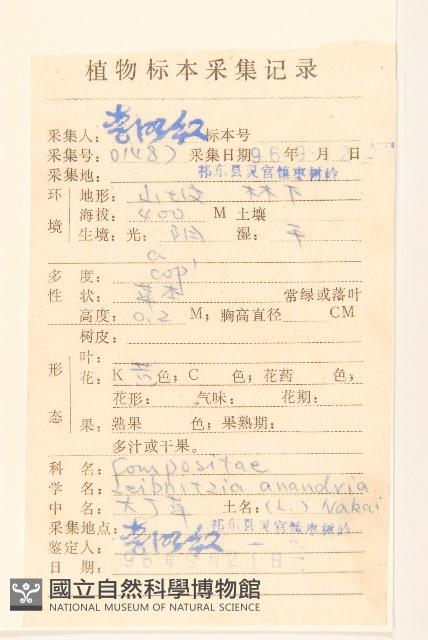 植物标本采集记录
采集人: 标本号
采集号: 01487 采集日期 96年9月2 日
采集地: 祁东县灵官镇枣树岭
环境 地形: 山坡 林下
海拔: 400 M 土壤
生境: 光: 阴 湿: 干
多度: cop.
性状: 草本 常绿或落叶
高度: 0.2 M; 胸高直径 CM
树皮:
形态 叶:
花: K 色; C 色; 花药 色;
花形: 气味: 花期:
果: 熟果 色; 果熟期:
多汁或干果。
科名: Compositae
学名: Leibnitzia anandria
中名: 大丁草 土名: (L.) Nakai
采集地点: 祁东县灵官镇枣树岭
鉴定人:
日期: 96年9月21日
國立自然科學博物館
NATIONAL MUSEUM OF NATURAL SCIENCE